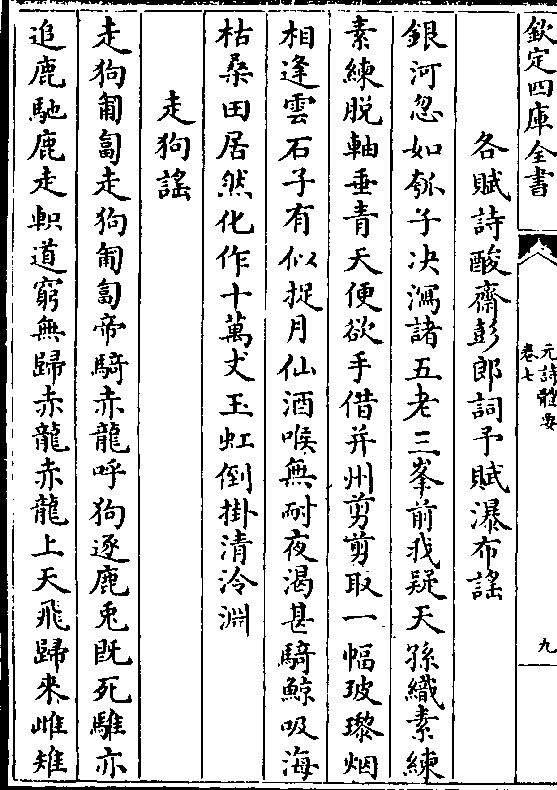 欽定四庫全書
元詩體要
卷七
九
各賦詩酸齋彭郎詞予賦瀑布謡
銀河忽如瓠子决瀉諸五老三峯前我疑天孫織素練
素練脱軸垂青天便欲手借并州剪剪取一幅玻瓈烟
相逢雲石子有似捉月仙酒喉無耐夜渴甚騎鯨吸海
枯桑田居然化作十萬丈玉虹倒掛清泠淵
走狗謡
走狗匍匐走狗匍匐帝騎赤龍呼狗逐鹿兎既死騅亦
追鹿馳鹿走軹道窮無歸赤龍赤龍上天飛歸來雌雉